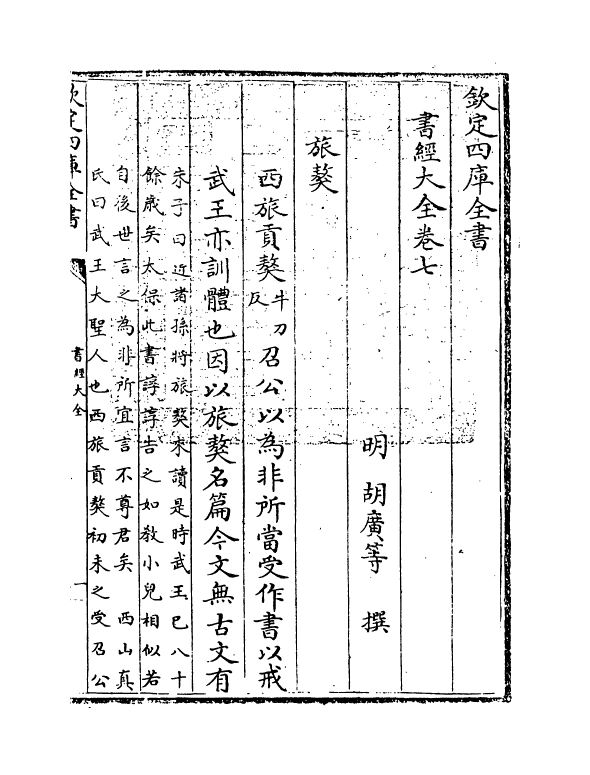 欽定四庫全書
書經大全卷七
明 胡廣等 撰
旅獒
西旅貢獒牛刀反召公以為非所當受作書以戒
武王亦訓體也因以旅獒名篇今文無古文有
朱子曰近諸孫將旅獒來讀是時武王已八十
餘歳矣太保此書諄諄告之如教小兒相似若
自後世言之為非所宜言不尊君矣 西山真
氏曰武王大聖人也西旅貢獒初未之受召公
欽定四庫全書
書經大全
一